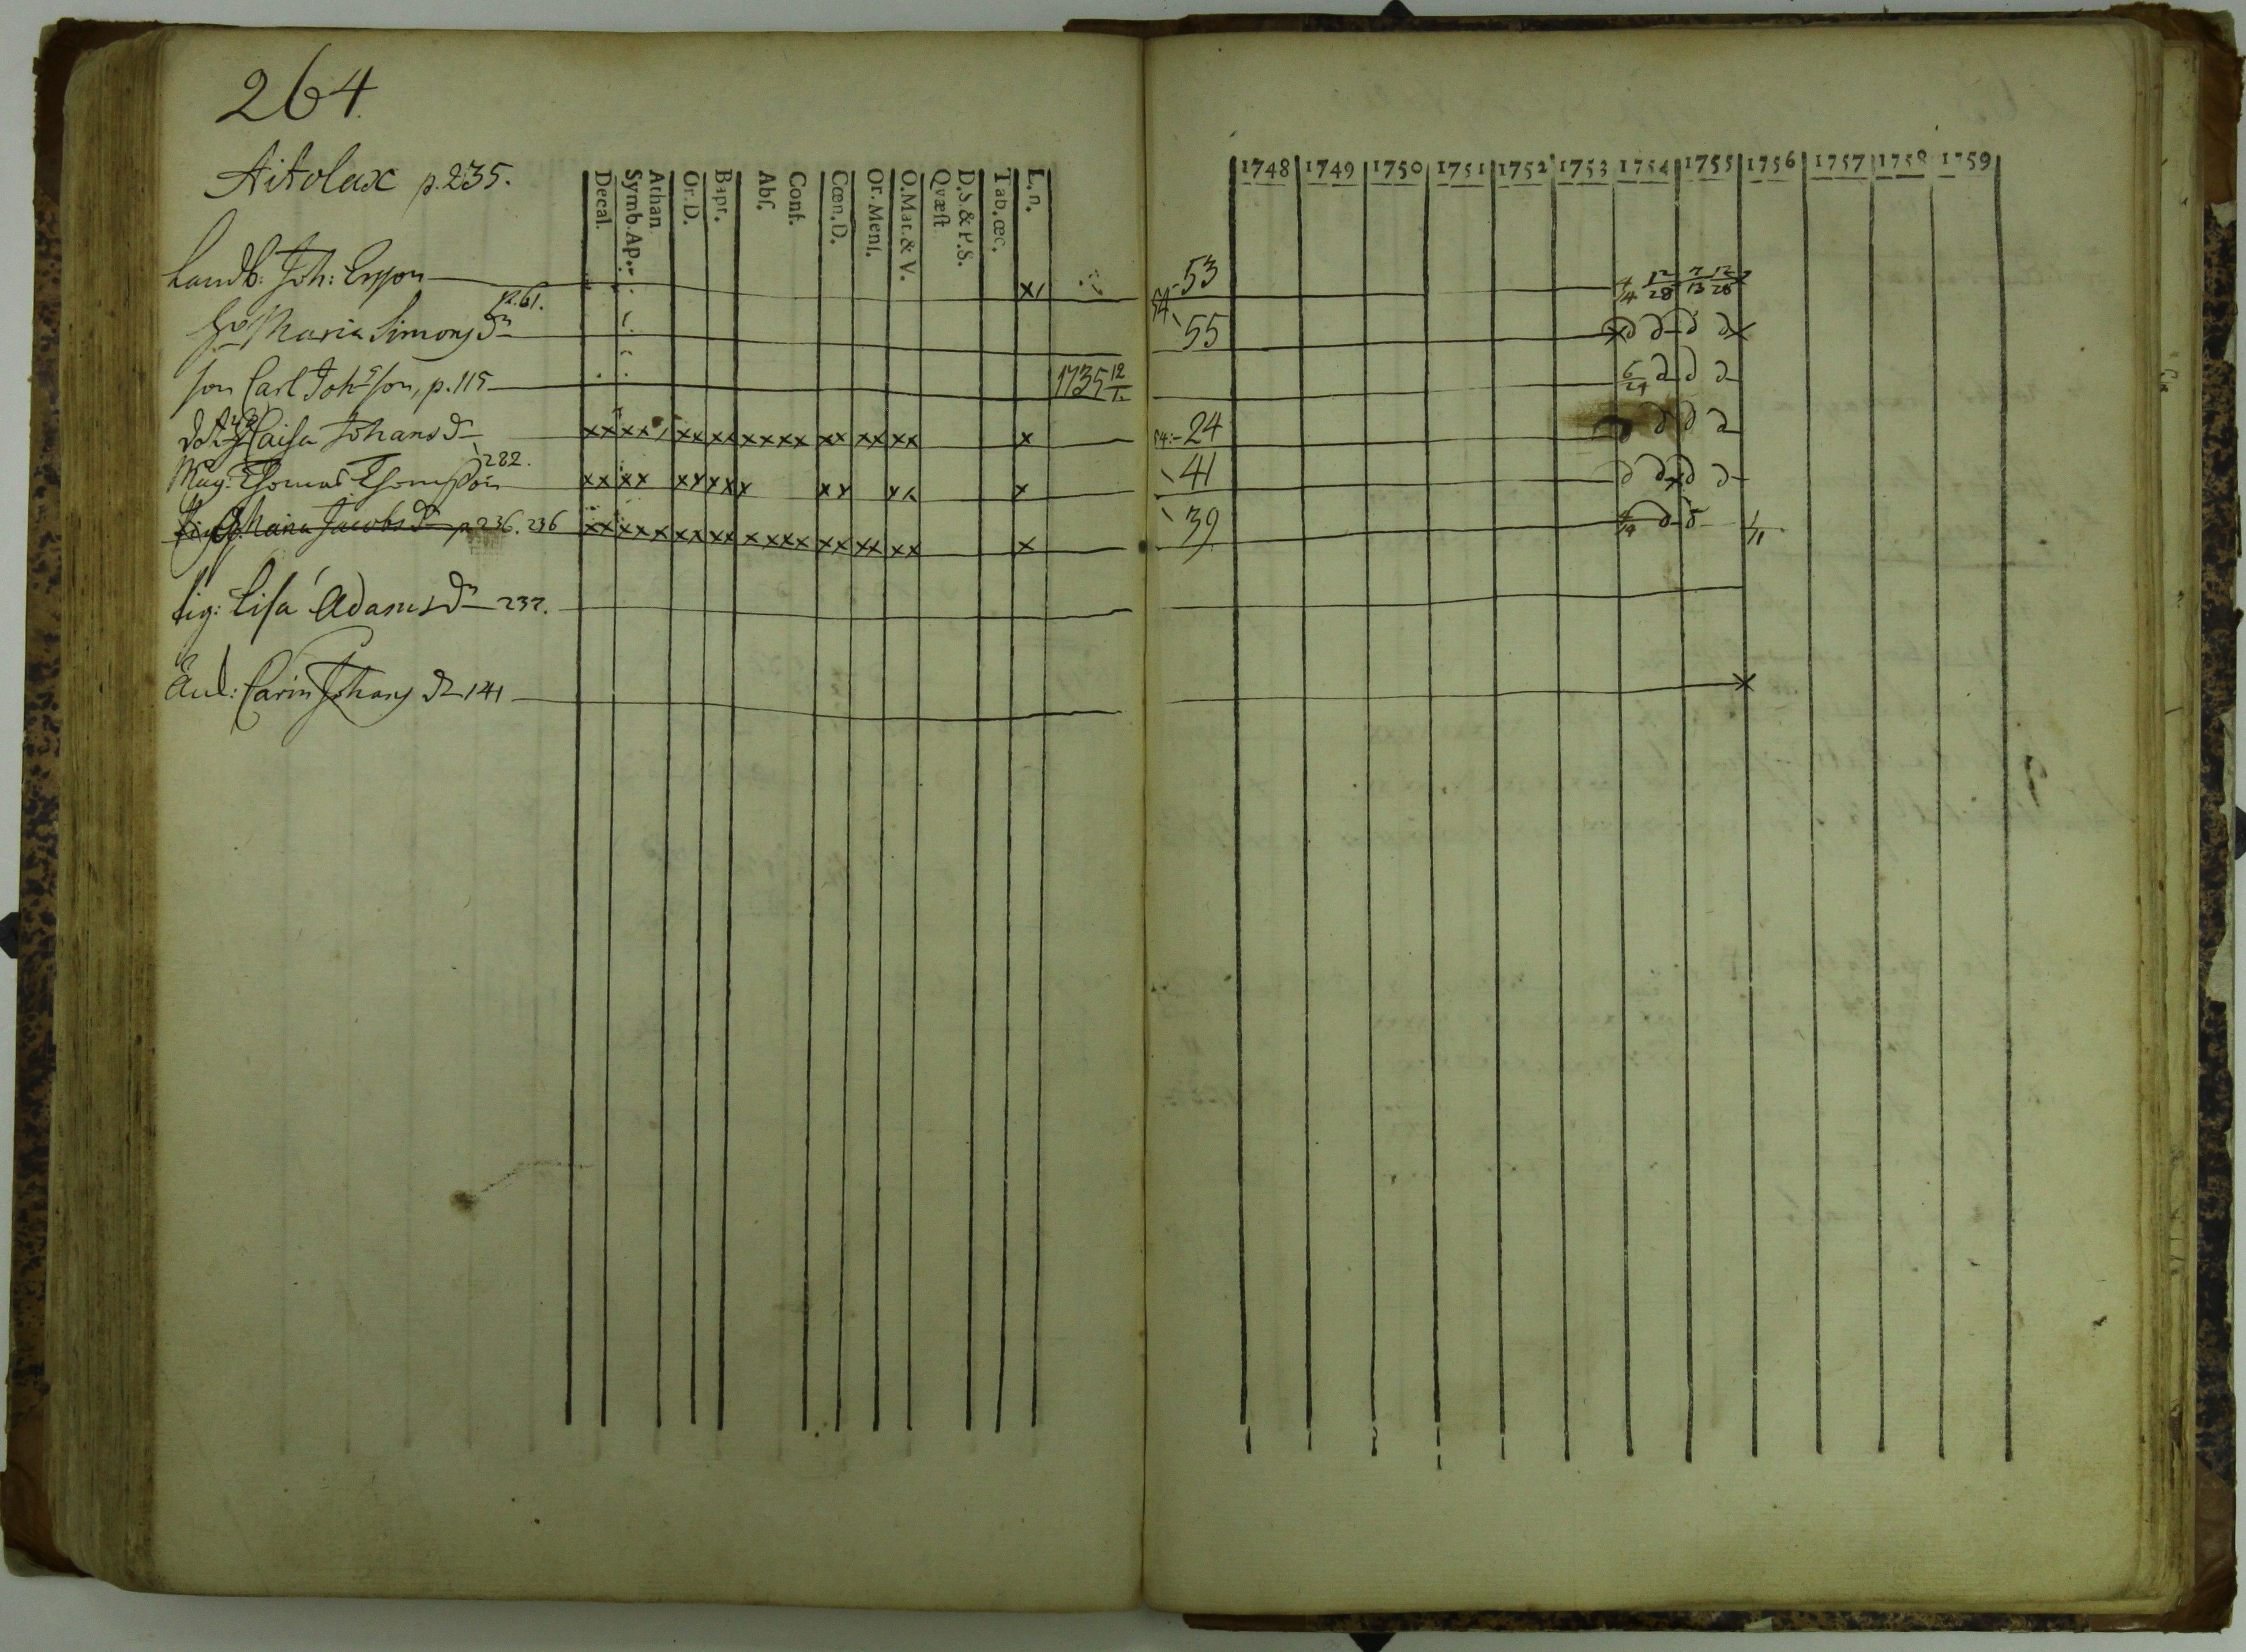 264.
Aitolax p. 235.
Decal. Symb. Ap. Athan Or. D. Bapt. Abs. Conf. Cœn. D. Or. Mens. O. Mat. & V. Qvæst D. S. & P. S. Tab. œc. L. n.
1748 1749 1750 1751 1752 1753 1754 1755 1756 1757 1758 1759
Landb: Joh: Ersson x 53 12/28 7/13 12/28
p. 61.
Maria Simons dr 54 55 d d d d x
son Carl Johsson, p. 115 1735 12 6/24 d d d
Caisa Johans dr xx xx xx xx xxxx xx xx xx x 54:- 24 d d d d
282.
Thomas Thomsson xx xx xx xxx xx x 41 d d d d
Maria Jacobs dr p 236. 236 xx xxx xx xx xxxx xx xx xx x 39 d 1/11
pig: Lisa Adams dr 237.
Carin Johans dr 141 x